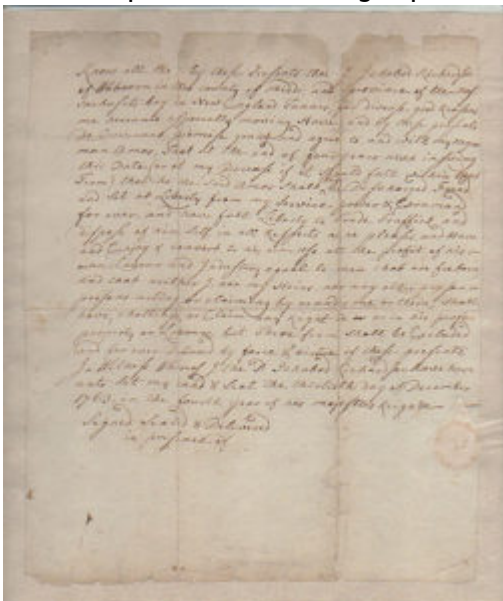 Know all men by these Presents that I Jshabod Richardson
of Wobourn in the county of midds and Province of the Mas
sachusets Bay in New England Tanner, for diverse good Reasons
me hereunto especially moving Have and by these presents
Do Covenant promise grant and agree to and with my negro
man Amos, That at the end of four years next insuing
this Date or at my Decease if it should fall within that
Term that he the said Amos Shall be Discharged Freed
and Set at Liberty from my Service power & Command
for ever, and have full Liberty to trade Traffick and
dispose of him self in all Respects as he pleases and Have
and Enjoy & convert to his own use all the profit of his
own Labour and Industry equal to men that are freeborn
and that neither I nor my Heirs nor any other person or
persons acting or claiming by or under me or them, Shall
have, challenge or Claim any right to or in his person
property or Labour, but therefrom Shall be Excluded
and forever Debarred by force & virtue of these presents
In Witness whereof I the Sd Ishabod Richardson have here
unto Set my hand & Seal the thirtieth day of December
1763, in the fourth year of his majesties Reign
Signed Sealed & Delivered
in presence of